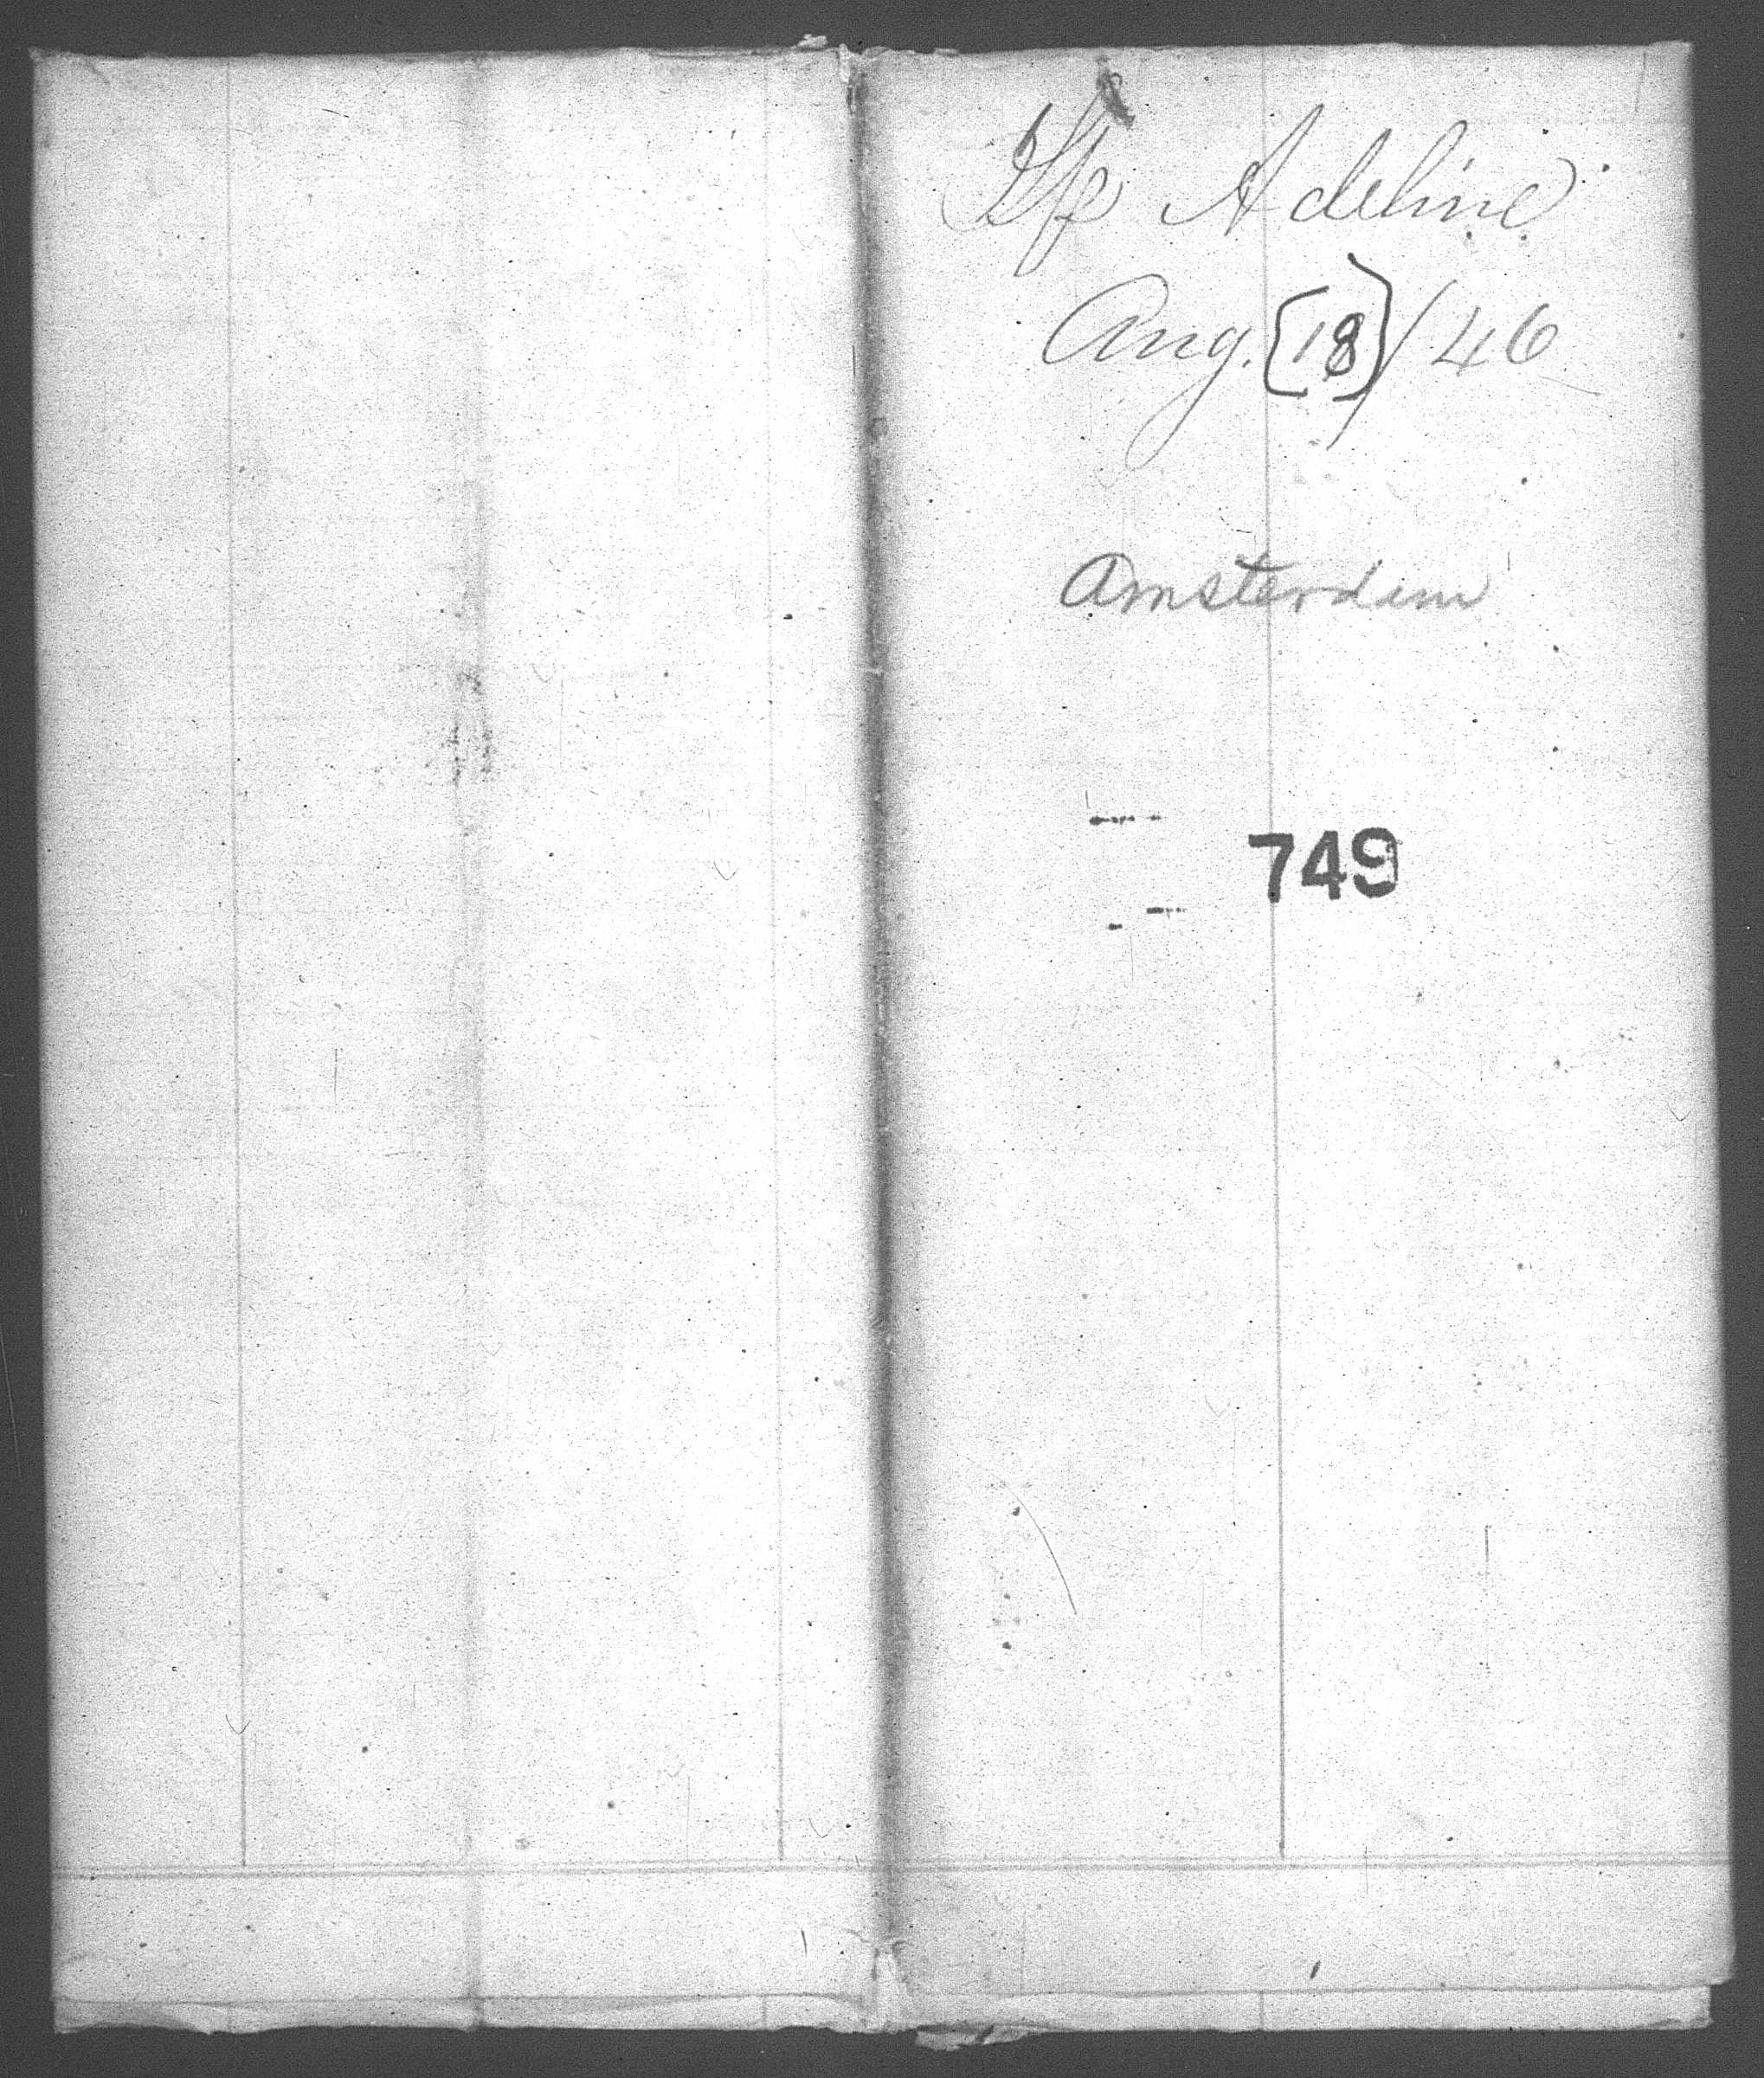 Sp Adeline
Aug. [18]/46
Amsterdam
749